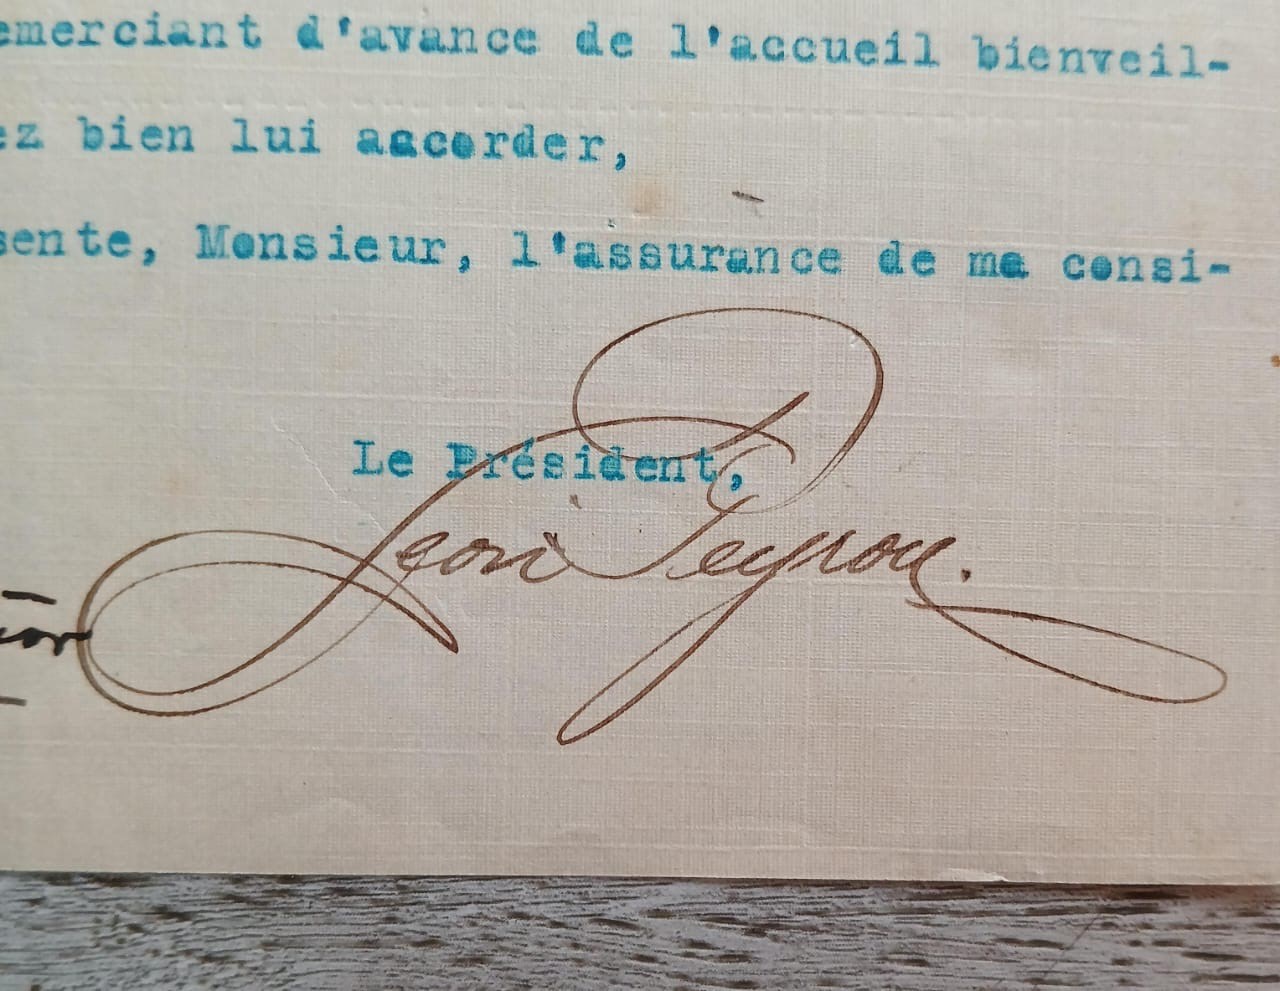 emerciant d'avance de l'accueil bienveil-
ez bien lui accorder,
sente, Monsieur, l'assurance de ma consi-
Le Président,
Leon Peyrou.